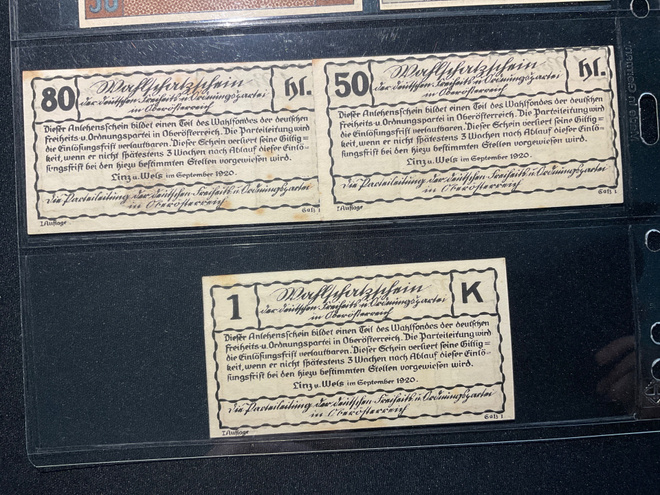 50
80
Wahlschatzschein
hl.
der deutschen Freiheits u. Ordnungspartei
in Oberösterreich
Dieser Anlehensschein bildet einen Teil des Wahlfondes der deutschen
Freiheits u. Ordnungspartei in Oberösterreich. Die Parteileitung wird
die Einlösungsfrist verlautbaren. Dieser Schein verliert seine Giltig=
keit, wenn er nicht spätestens 3 Wochen nach Ablauf dieser Einlö=
sungsfrist bei den hiezu bestimmten Stellen vorgewiesen wird.
Linz u. Wels im September 1920.
Die Parteileitung der deutschen Freiheits u. Ordnungspartei
in Oberösterreich
1 Auflage
Satz 1
50
Wahlschatzschein
hl.
der deutschen Freiheits u. Ordnungspartei
in Oberösterreich
Dieser Anlehensschein bildet einen Teil des Wahlfondes der deutschen
Freiheits u. Ordnungspartei in Oberösterreich. Die Parteileitung wird
die Einlösungsfrist verlautbaren. Dieser Schein verliert seine Giltig=
keit, wenn er nicht spätestens 3 Wochen nach Ablauf dieser Einlö=
sungsfrist bei den hiezu bestimmten Stellen vorgewiesen wird.
Linz u. Wels im September 1920.
Die Parteileitung der deutschen Freiheits u. Ordnungspartei
in Oberösterreich
1 Auflage
Satz 1
1
Wahlschatzschein
K
der deutschen Freiheits u. Ordnungspartei
in Oberösterreich
Dieser Anlehensschein bildet einen Teil des Wahlfondes der deutschen
Freiheits u. Ordnungspartei in Oberösterreich. Die Parteileitung wird
die Einlösungsfrist verlautbaren. Dieser Schein verliert seine Giltig=
keit, wenn er nicht spätestens 3 Wochen nach Ablauf dieser Einlö=
sungsfrist bei den hiezu bestimmten Stellen vorgewiesen wird.
Linz u. Wels im September 1920.
Die Parteileitung der deutschen Freiheits u. Ordnungspartei
in Oberösterreich
1 Auflage
Satz 1